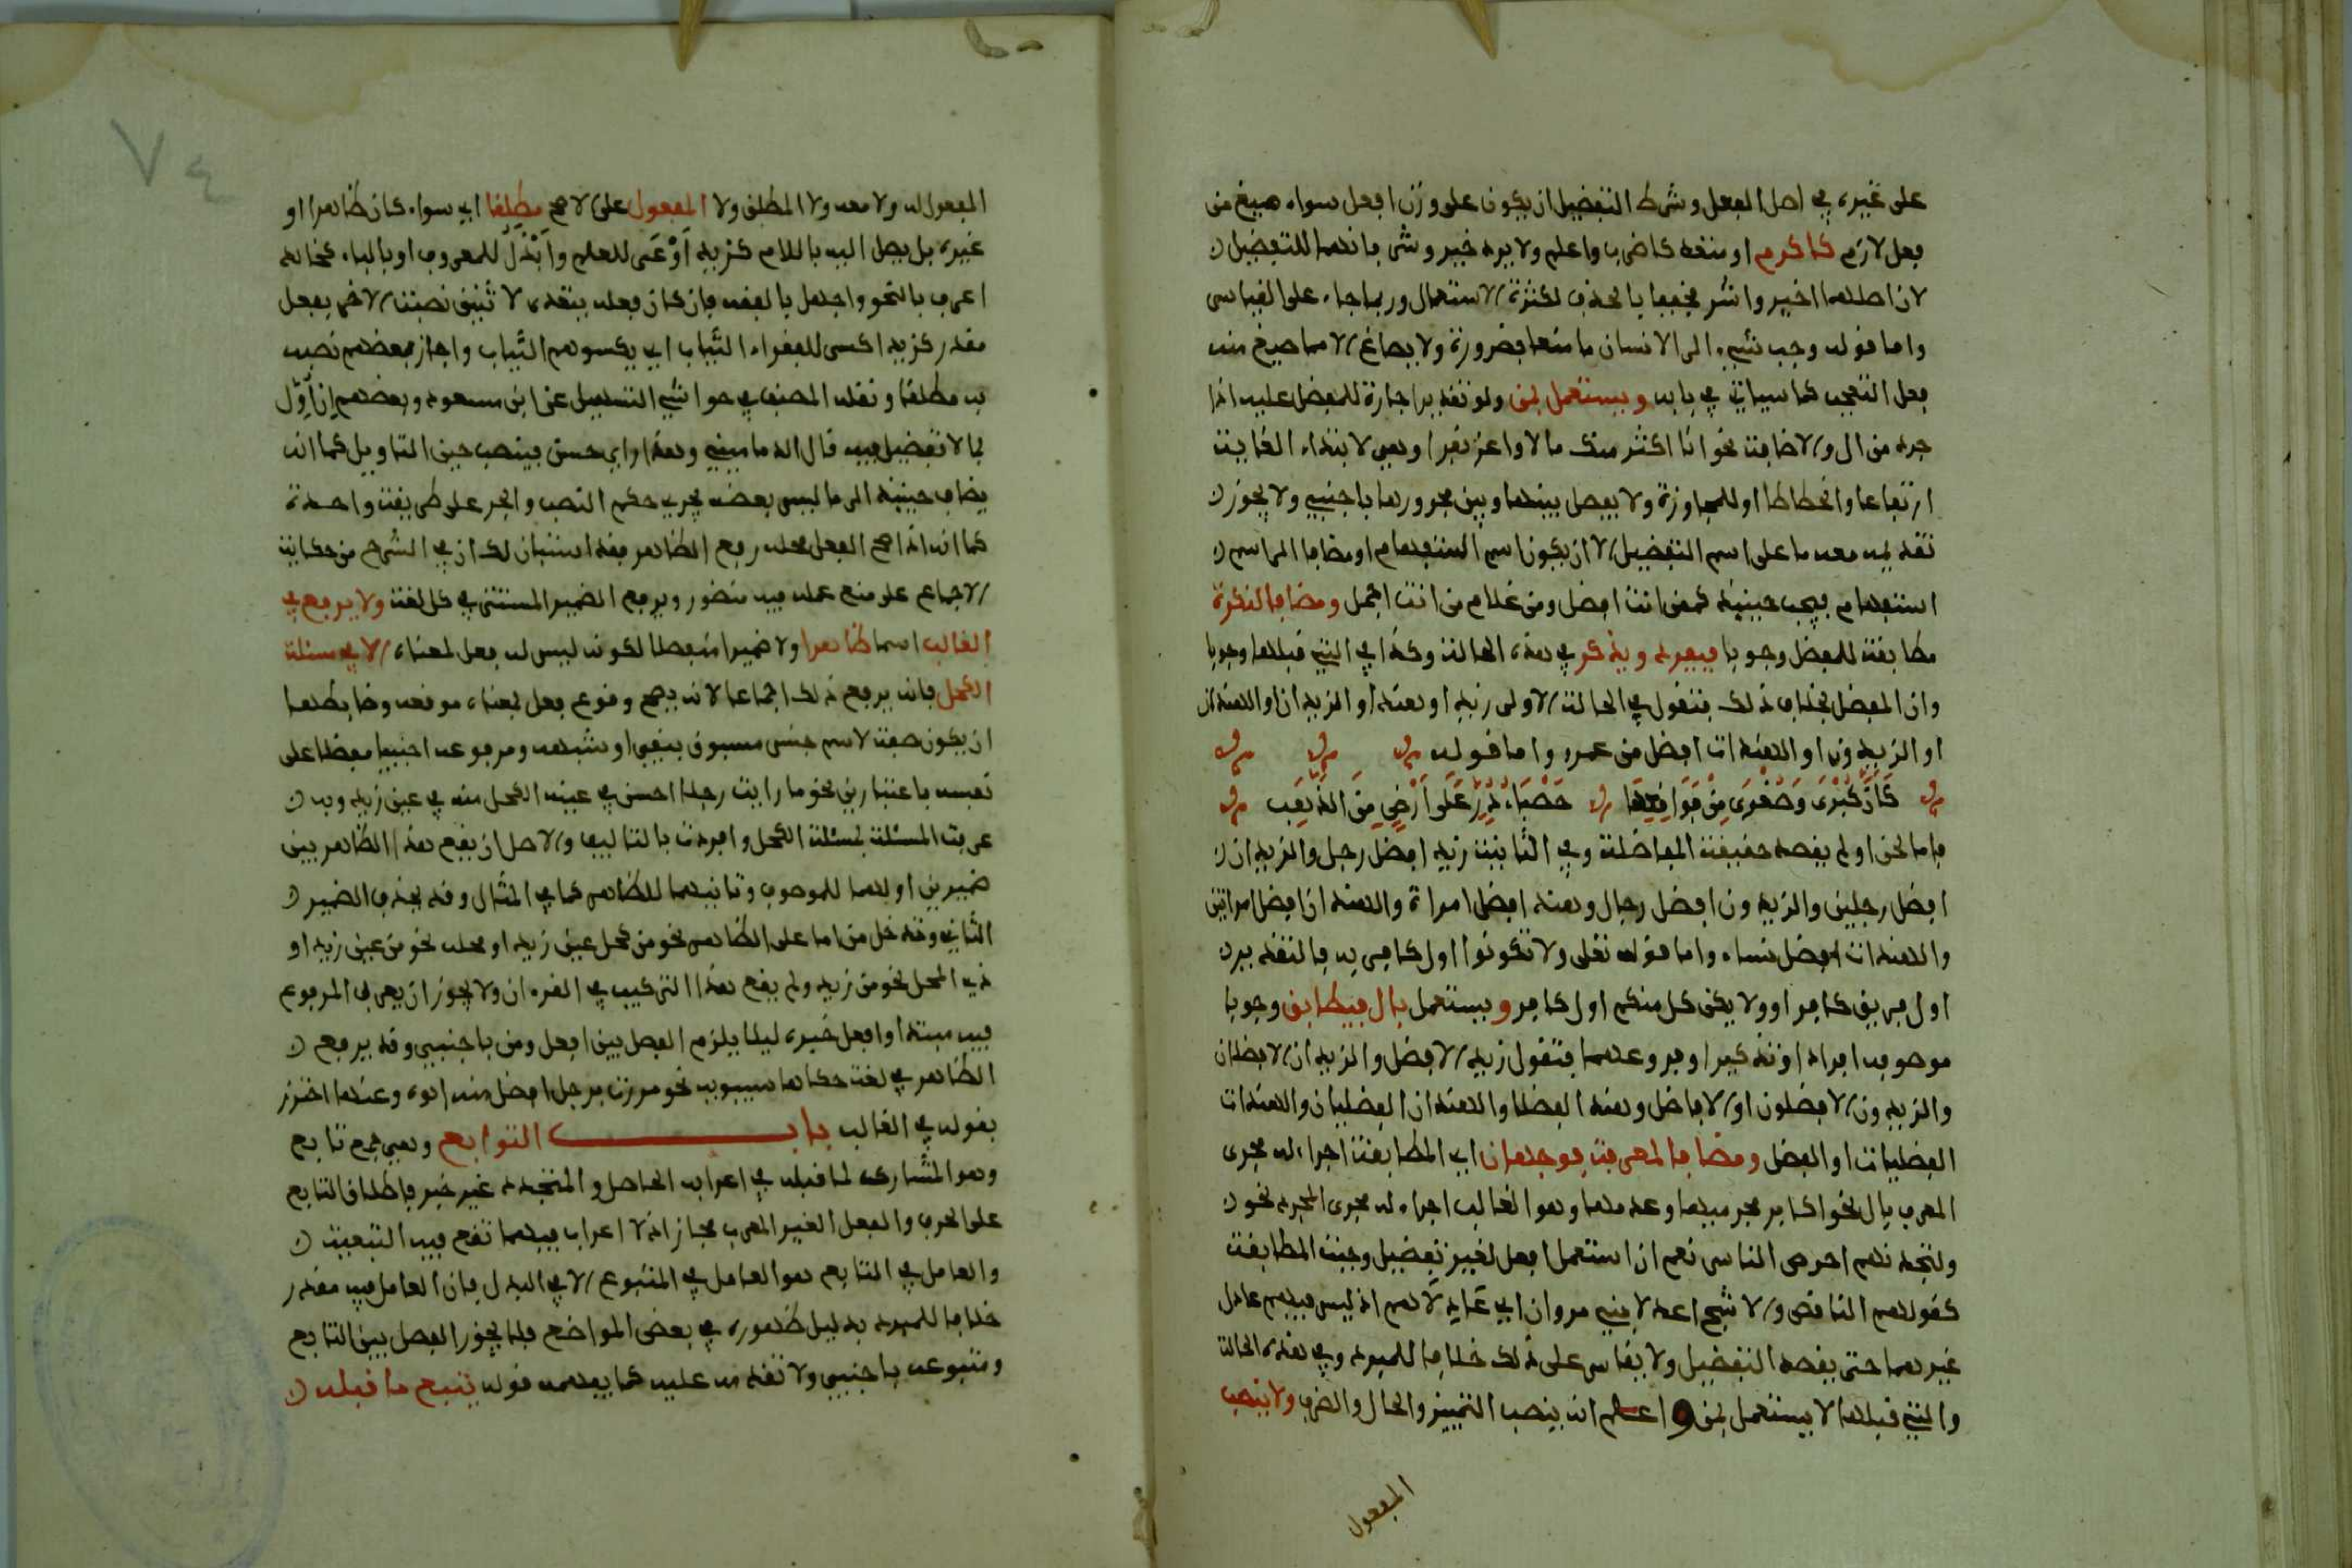 على غيره في اصل الفعل وشرط التفضيل ان يكون على وزن افعل سواء صيغ من
فعل لازم كاكرم او متعد كاضرب واعلم ولا يرد خير وشر فانهما للتفضيل
لان اصلهما اخير واشر فخففا بالحذف لكثرة الاستعمال وربما جاء على القياس
واما قوله وحب شيء الى الانسان ما منعا فضرورة ولا يصاغ الا مما صيغ منه
فعل التعجب كما سياتي في بابه ويستعمل بمن ولو تقديرا جارة للمفضل عليه اذا
جرد من ال والاضافة نحو انا اكثر منك مالا واعز نفرا وهي لابتداء الغاية
ارتفاعا وانحطاطا او للمجاوزة ولا يفصل بينها وبين مجرورها باجنبي ولا يجوز
تقديمه معها على اسم التفضيل الا ان يكون اسم استفهام او مضافا الى اسم
استفهام فيجب حينئذ كممن انت افضل ومن غلام من انت اجمل ومضافا لنكرة
مطابقة للمفضل وجوبا فيفرد ويذكر في هذه الحالة وكذا في التي قبلها وجوبا
وان المفضل بخلاف ذلك فتقول في الحالة الاولى زيد او هند او الزيدان او الهندان
او الزيدون او الهندات افضل من عمرو واما قوله
كَأَنَّ كُبْرَى وَصُغْرَى مِنْ فَوَاقِعِهَا حَصْبَاءُ دُرٍّ عَلَى أَرْضٍ مِنَ الذَّهَبِ
فاما لحن او لم يقصد حقيقة المفاضلة وفي الثانية زيد افضل رجل والزيدان
افضل رجلين والزيدون افضل رجال وهند افضل امراة والهندان افضل امراتين
والهندات افضل نساء واما قوله تعلى ولا تكونوا اول كافر به فالتقدير
اول فريق كافر او ولا يكن كل منكم اول كافر ويستعمل بال فيطابق وجوبا
موصوفه افرادا وتذكيرا وفروعهما فتقول زيد الافضل والزيدان الافضلان
والزيدون الافضلون او الافاضل وهند الفضلى والهندان الفضليان والهندات
الفضليات او الفضل ومضافا لمعرفة فوجهان اي المطابقة اجراء له مجرى
المعرف بال نحو اكابر مجرميها وعدمها وهو الغالب اجراء له مجرى المجرد نحو
ولتجدنهم احرص الناس نعم ان استعمل افعل لغير تفضيل وجبت المطابقة
كقولهم الناقص والاشج اعدلا بني مروان اي عادلاهم اذ ليس فيهم عادل
غيرهما حتى يقصد التفضيل ولا يقاس على ذلك خلافا للمبرد وفي هذه الحالة
والتي قبلها لا يستعمل بمن واعلم انه ينصب التمييز والحال والظرف ولا ينصب
المفعول
المفعول له ولا معه ولا المطلق ولا المفعول على الاصح مطلقا اي سواء كان ظاهرا او
غيره بل يصل اليه باللام كزيد اَوْعَى للعلم وابْذَل للمعروف او بالباء كخالد
اعرف بالنحو واجهل بالفقه فان كان فعله يتعدى لاثنين نصبت الاخر بفعل
مقدر كزيد اكسى للفقراء الثياب اي يكسوهم الثياب واجاز بعضهم نصبه
به مطلقا ونقله المصنف في حواشي التسهيل عن ابن مسعود وبعضهم ان اَوَّل
بما لا تفضيل فيه قال الدماميني وهذا راي حسن فينصب حين التاويل كما انه
يضاف حينئذ الى ما ليس بعضه فجرى حكم النصب والجر على طريقة واحدة
كما انه اذا صح الفعل محله رفع الظاهر فقد استبان لك ان في الشرح من حكاية
الاجماع على منع عمله فيه منظور ويرفع الضمير المستتر في كل لغة ولا يرفع في
الغالب اسما ظاهرا ولا ضميرا منفصلا لكونه ليس له فعل لمعناه الا في مسئلة
الكحل فانه يرفع ذلك اجماعا لانه يصح وقوع فعل بمعناه موقعه وضابطها
ان يكون صفة لاسم جنس مسبوق بنفي او شبهه ومرفوعه اجنبيا مفضلا على
نفسه باعتبارين نحو ما رايت رجلا احسن في عينه الكحل منه في عين زيد وبه
عرفت المسئلة بمسئلة الكحل وافردت بالتاليف والاصل ان يقع هذا الظاهر بين
ضميرين اولهما للموصوف وثانيهما للظاهر كما في المثال وقد يحذف الضمير
الثاني وتدخل من اما على الظاهر نحو من كحل عين زيد او محله نحو من عين زيد او
ذي المحل نحو من زيد ولم يقع هذا التركيب في القرءان ولا يجوز ان يعرب المرفوع
فيه مبتدا وافعل خبره ليلا يلزم الفصل بين افعل ومن باجنبي وقد يرفع
الظاهر في لغة حكاها سيبويه نحو مررت برجل افضل منه ابوه وعنها احترز
بقوله في الغالب باب التوابع وهي جمع تابع
وهو المشارك لما قبله في اعرابه الحاصل والمتجدد غير خبر فاطلاق التابع
على الحرف والفعل الغير المعرب مجاز اذ لا اعراب فيهما تقع فيه التبعية
والعامل في التابع هو العامل في المتبوع الا في البدل فان العامل فيه مقدر
خلافا للمبرد بدليل ظهوره في بعض المواضع فلا يجوز الفصل بين التابع
ومتبوعه باجنبي ولا تقدمه عليه كما يفهمه قوله يتبع ما قبله
٧٤